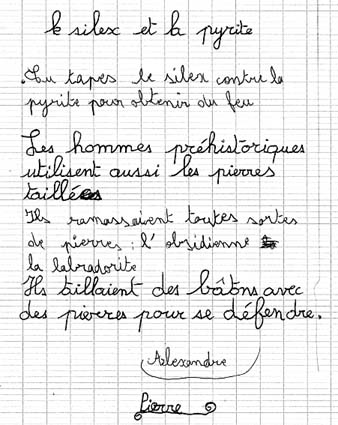 le silex et la pyrite
.Tu tapes le silex contre la
pyrite pour obtenir du feu
Les hommes préhistoriques
utilisent aussi les pierres
taillées
Ils ramassaient toutes sortes
de pierres : l'obsidienne
la labradorite
Ils tillaient des bâtons avec
des pierres pour se défendre.
Alexandre
Pierre